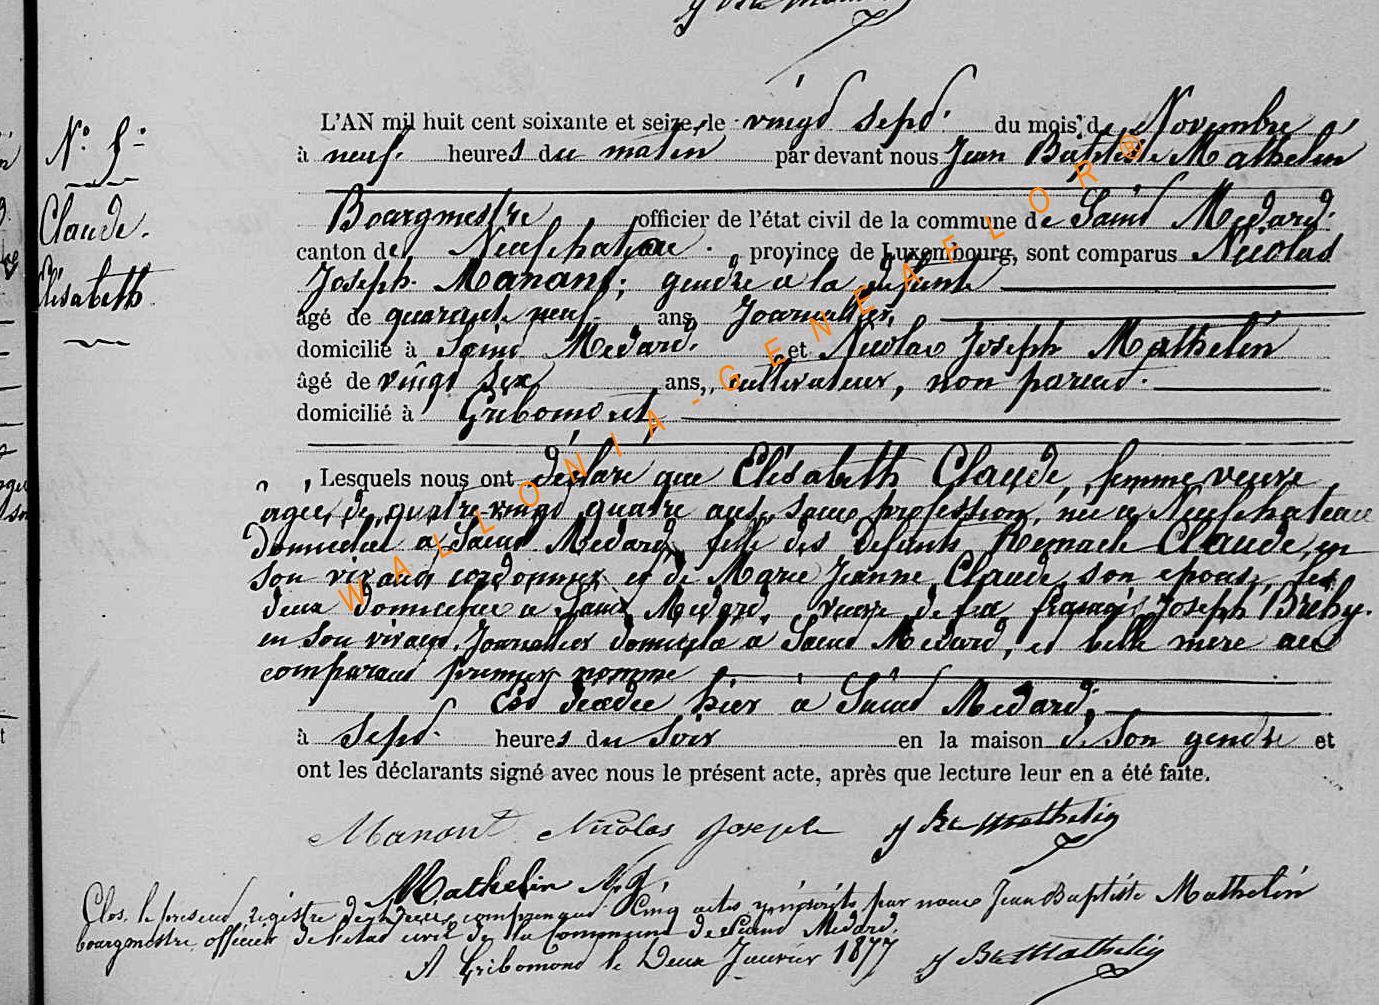 N.° 5.=
Claude.
Elisabeth
L'AN mil huit cent soixante et seize, le vingt sept. du mois de Novembre
à neuf. heures du matin par devant nous Jean Baptiste Mathelin
Bourgmestre officier de l'état civil de la commune de Saint Medard.
canton de Neufchateau . province de Luxembourg, sont comparus Nicolas
Joseph. Manant; gendre a la defunte
âgé de quarante neuf. ans, Journalier,
domicilié à Saint Medard. et Nicolas Joseph Mathelin
âgé de vingt six ans, cultivateur, non parent.
domicilié à Gribomont,
Lesquels nous ont déclaré que Elisabeth Claude, femme veuve
agée, de quatre-vingt quatre ans, sans profession, née a Neufchateau
domiciliée a Saint Medard, fille des defunts Remacle Claude, en
son vivant cordonnier et de Marie Jeanne Claude, son epouse, les
deux domiciliés a Saint Medard, veuve de feu françois Joseph Bréhy.
en son vivant, Journalier domicilié a Saint Medard, et belle mère au
comparant premier nommé
Est décédée hier à Saint Medard,
à sept. heures du soir en la maison de son gendre et
ont les déclarants signé avec nous le présent acte, après que lecture leur en a été faite.
Manant Nicolas Joseph J Bte Mathelin
Mathelin N. J.
Clos, le present registre de décès comprenant Cinq actes y inscrits par nous Jean Baptiste Mathelin
bourgmestre, officier de l'état civil de la Commune de Saint Medard.
A Gribomont le Deux Janvier 1877 J Bte Mathelin
WALLONIA-GENEAFLOR®